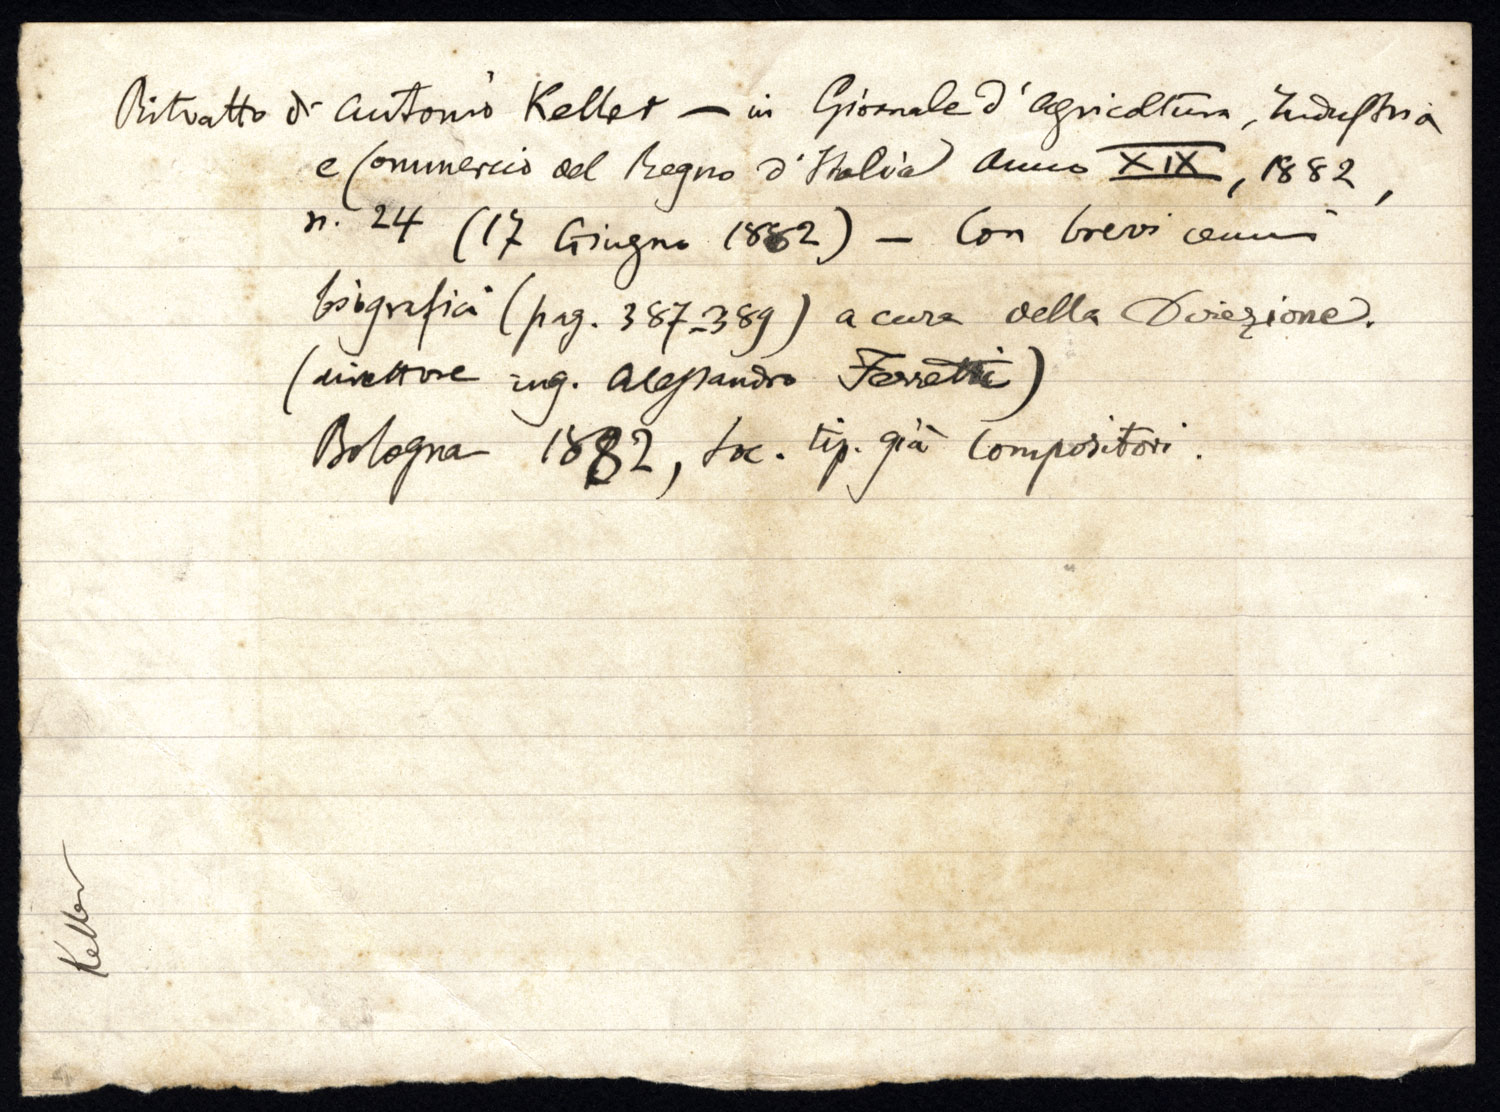 Ritratto di Antonio Keller – in Giornale d'Agricoltura, Industria
e Commercio del Regno d'Italia Anno XIX, 1882,
n. 24 (17 Giugno 1882) – Con brevi cenni
biografici (pag. 387-389) a cura della Direzione.
(direttore ing. Alessandro Ferretti)
Bologna 1882, Soc. tip. già Compositori.
Keller